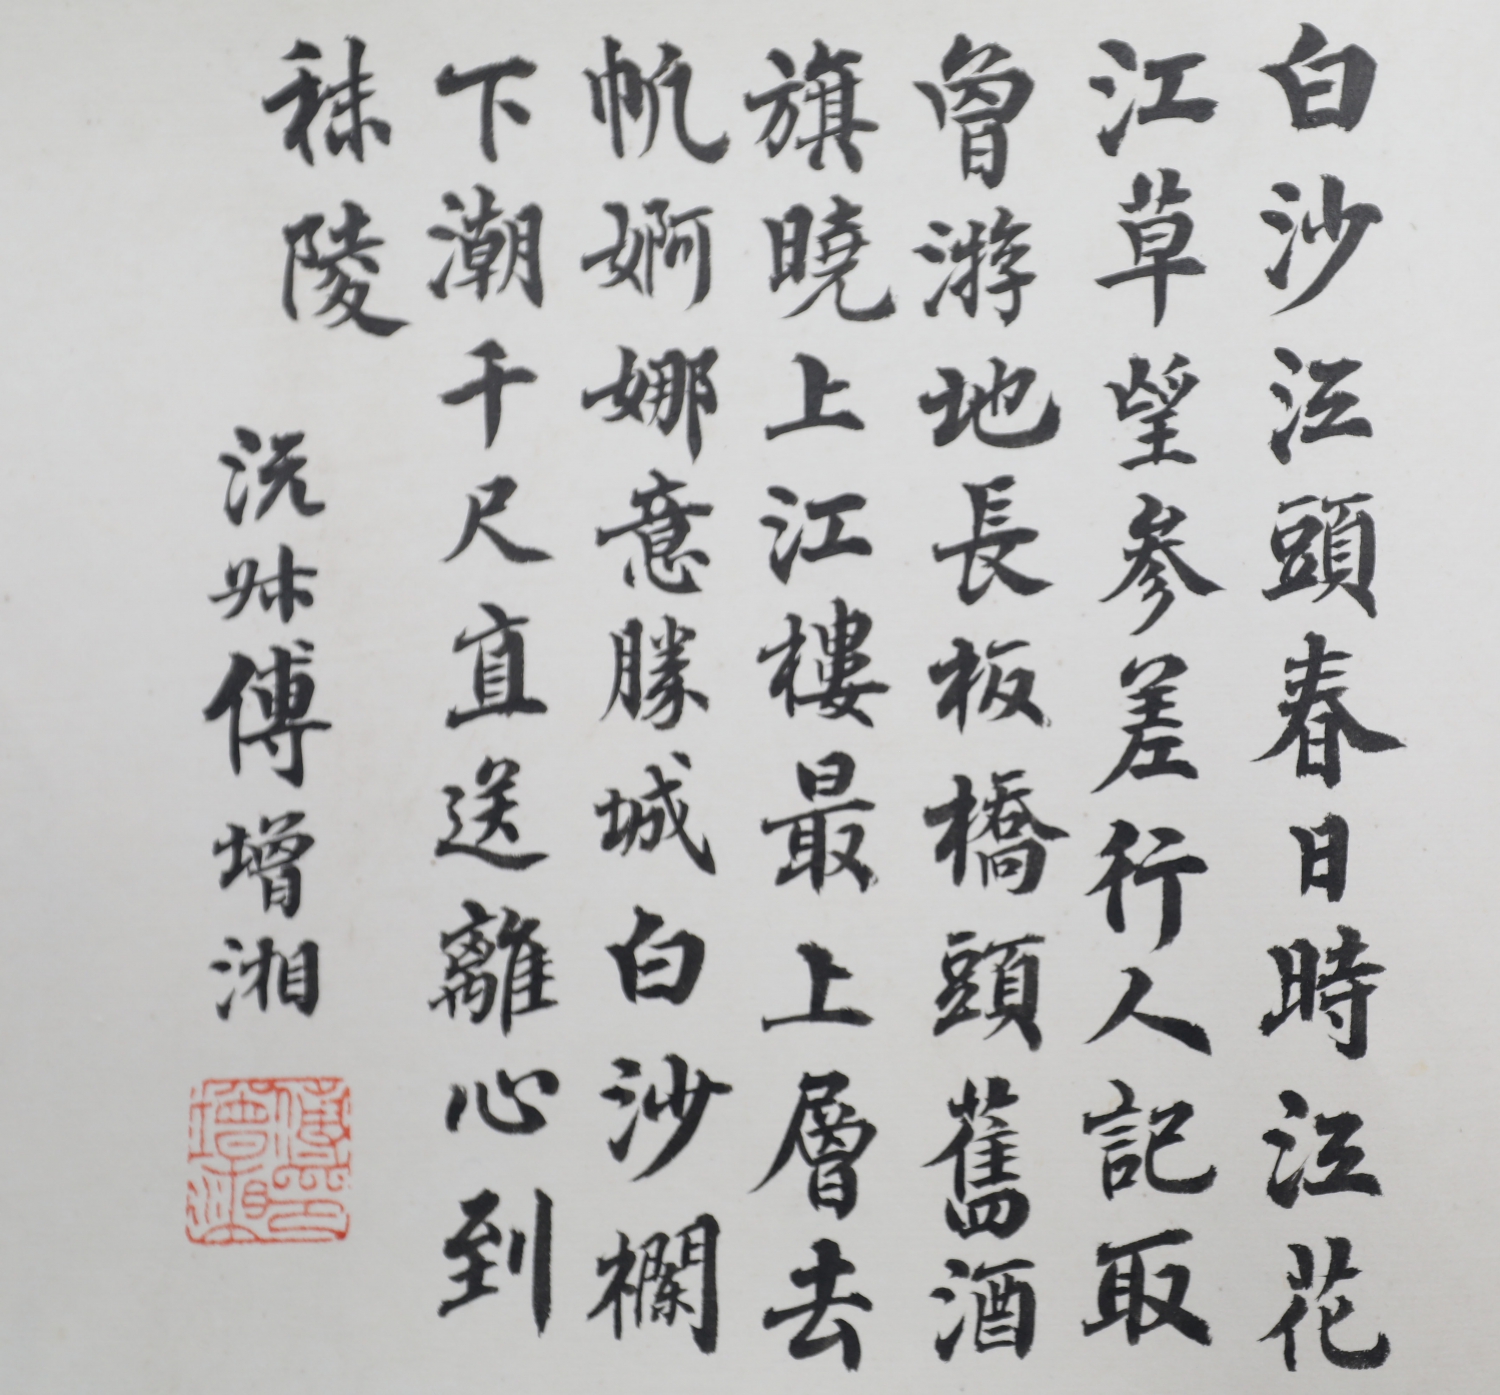 白沙江頭春日時江花
江草望參差行人記取
曾游地長板橋頭舊酒
旗曉上江樓最上層去
帆婀娜意勝城白沙欄
下潮千尺直送離心到
秣陵
沅叔傅增湘
傅印增湘